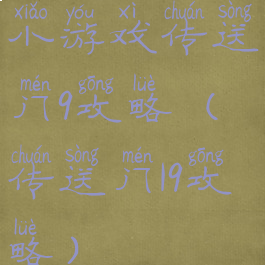 xiǎo yóu xì chuán sòng
小游戏传送
mén gōng lüè
门9攻略（
chuán sòng mén gōng
传送门19攻
lüè
略）